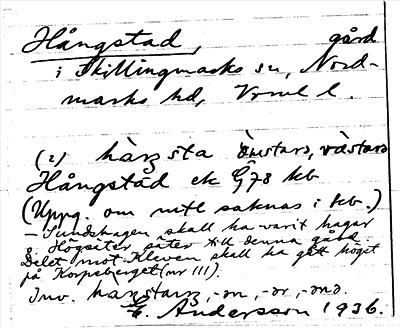 Hångstad, gård
i Skillingmarks sn, Nord-
marks hd, Vrml l.
(2) hàŋsta östars, västars
Hångstad ek G78 kb
(Uppg. om mtl saknas i kb.)
– Sundshagen skall ha varit hagar
o. Högsäter säter till denna gård.
Delet mot Kleven skall ha gått högst
på Korpeberget (nr III).
Inv. -ən, -ər, -ənə.
E. Andersson 1936.